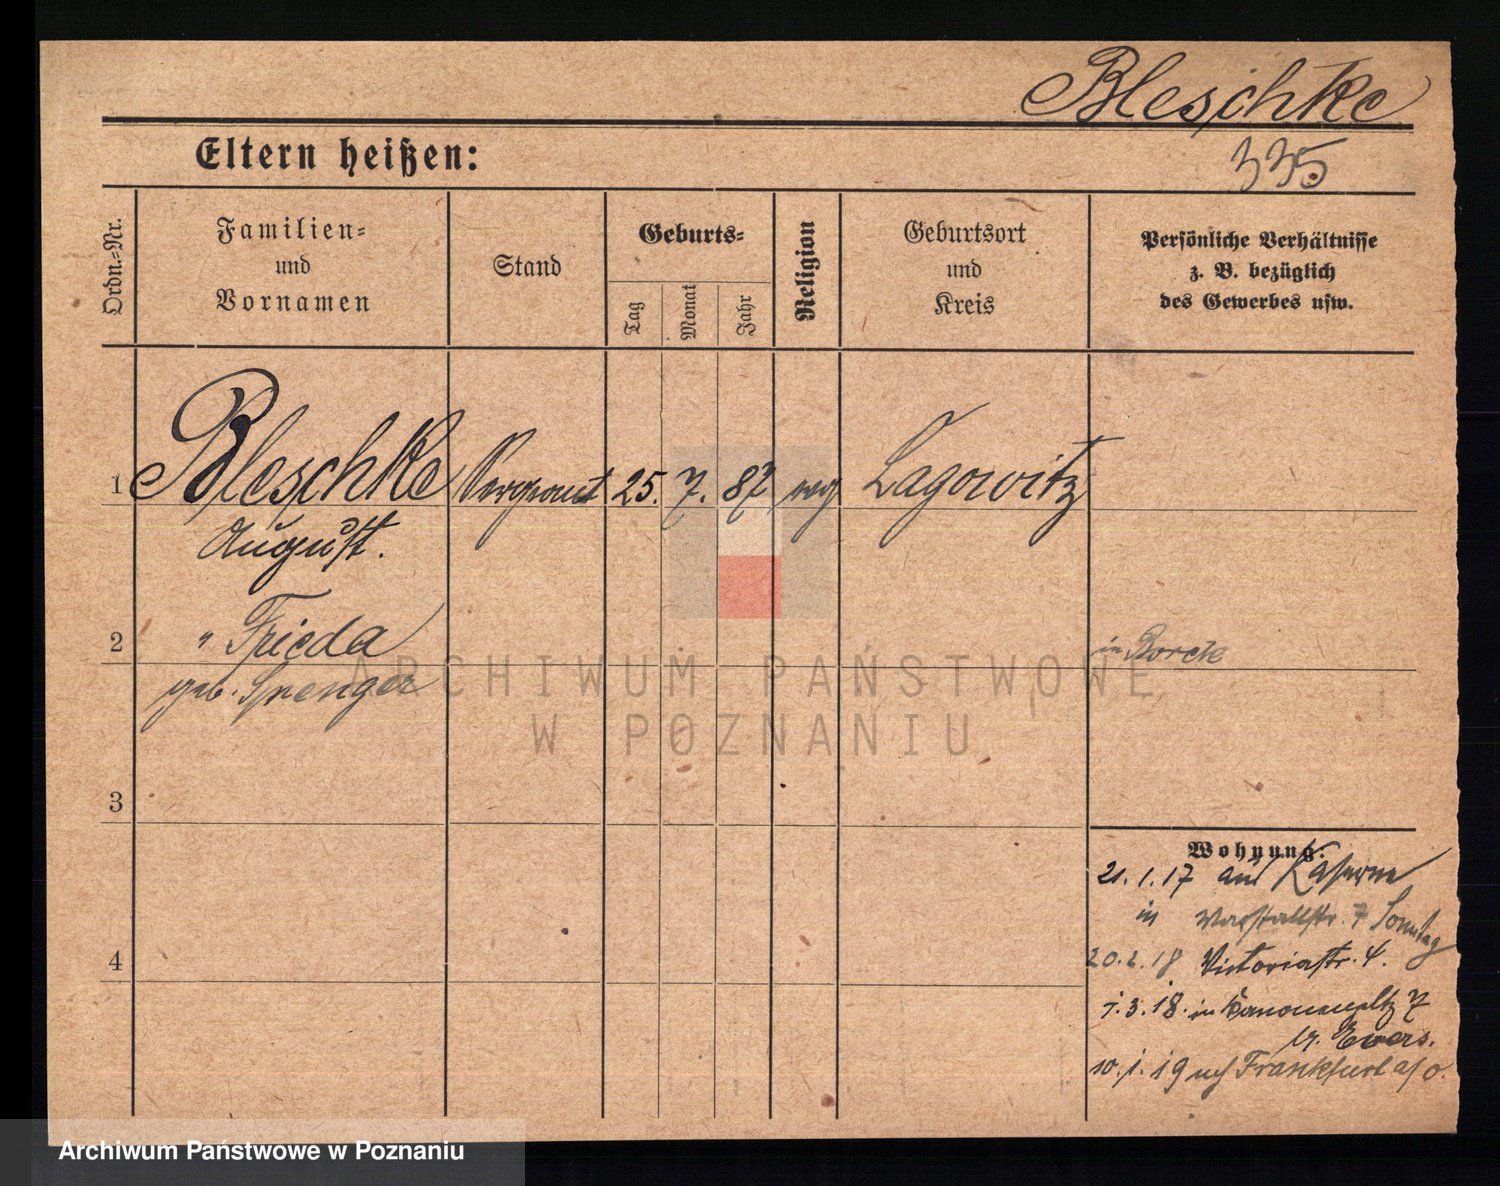 Bleschke
335
Eltern heißen:
Ordn.-Nr.
Familien-
und
Vornamen
Stand
Geburts-
Tag
Monat
Jahr
Religion
Geburtsort
und
Kreis
Persönliche Verhältnisse
z. B. bezüglich
des Gewerbes usw.
1 Bleschke Sergeant 25. 7. 87 evg Lagowitz
August.
2 " Frieda in Borek
geb. Spenger
3
4
Wohnung:
21.1.17 aus Kaserne
in 7 Sonntag
20.2.18 Victoriastr. 4.
7.3.18. in Kanonenpltz 7
b. Ewers.
10.1.19 nach Frankfurt a/O.
ARCHIWUM PAŃSTWOWE
W POZNANIU
Archiwum Państwowe w Poznaniu